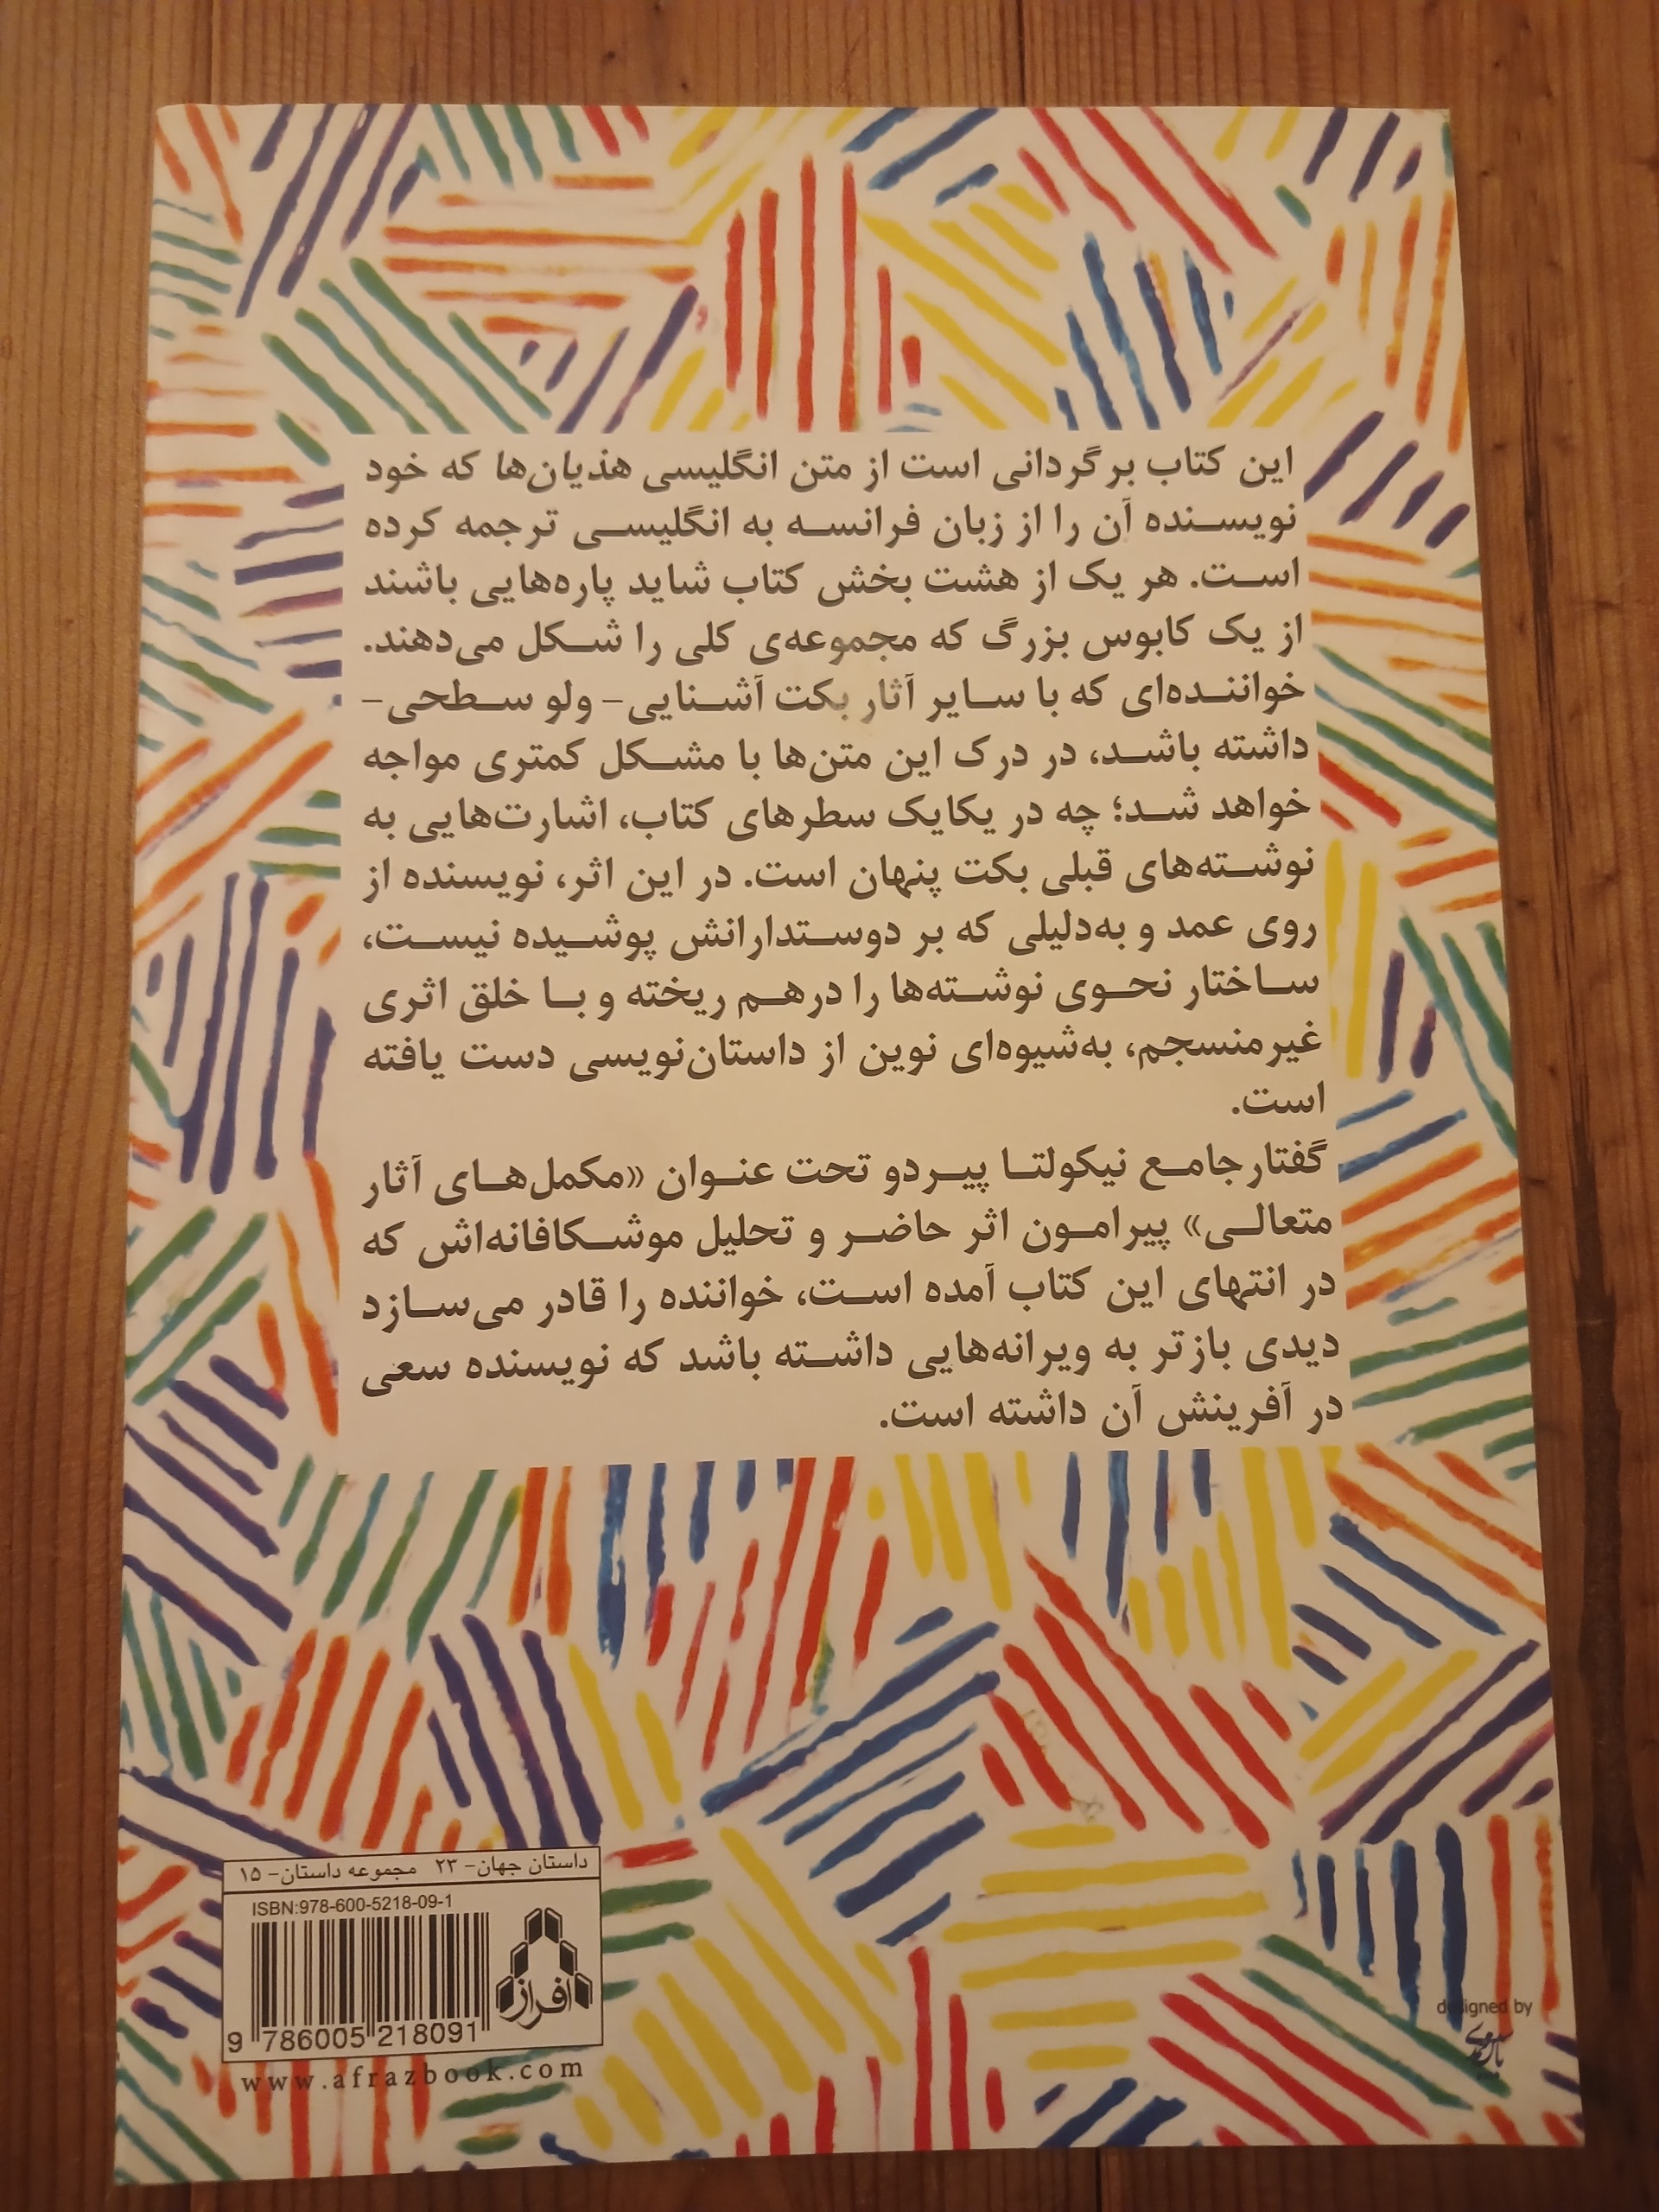 این کتاب برگردانی است از متن انگلیسی هذیان‌ها که خود
نویسنده آن را از زبان فرانسه به انگلیسی ترجمه کرده
است. هر یک از هشت بخش کتاب شاید پاره‌هایی باشند
از یک کابوس بزرگ که مجموعه‌ی کلی را شکل می‌دهند.
خواننده‌ای که با سایر آثار بکت آشنایی- ولو سطحی-
داشته باشد، در درک این متن‌ها با مشکل کمتری مواجه
خواهد شد؛ چه در یکایک سطرهای کتاب، اشارت‌هایی به
نوشته‌های قبلی بکت پنهان است. در این اثر، نویسنده از
روی عمد و به‌دلیلی که بر دوستدارانش پوشیده نیست،
ساختار نحوی نوشته‌ها را درهم ریخته و با خلق اثری
غیرمنسجم، به‌شیوه‌ای نوین از داستان‌نویسی دست یافته
است.
گفتار جامع نیکولتا پیردو تحت عنوان «مکمل‌های آثار
متعالی» پیرامون اثر حاضر و تحلیل موشکافانه‌اش که
در انتهای این کتاب آمده است، خواننده را قادر می‌سازد
دیدی بازتر به ویرانه‌هایی داشته باشد که نویسنده سعی
در آفرینش آن داشته است.
داستان جهان- ۲۳ مجموعه داستان- ۱۵
ISBN:978-600-5218-09-1
افراز
9 786005 218091
www.afrazbook.com
designed by